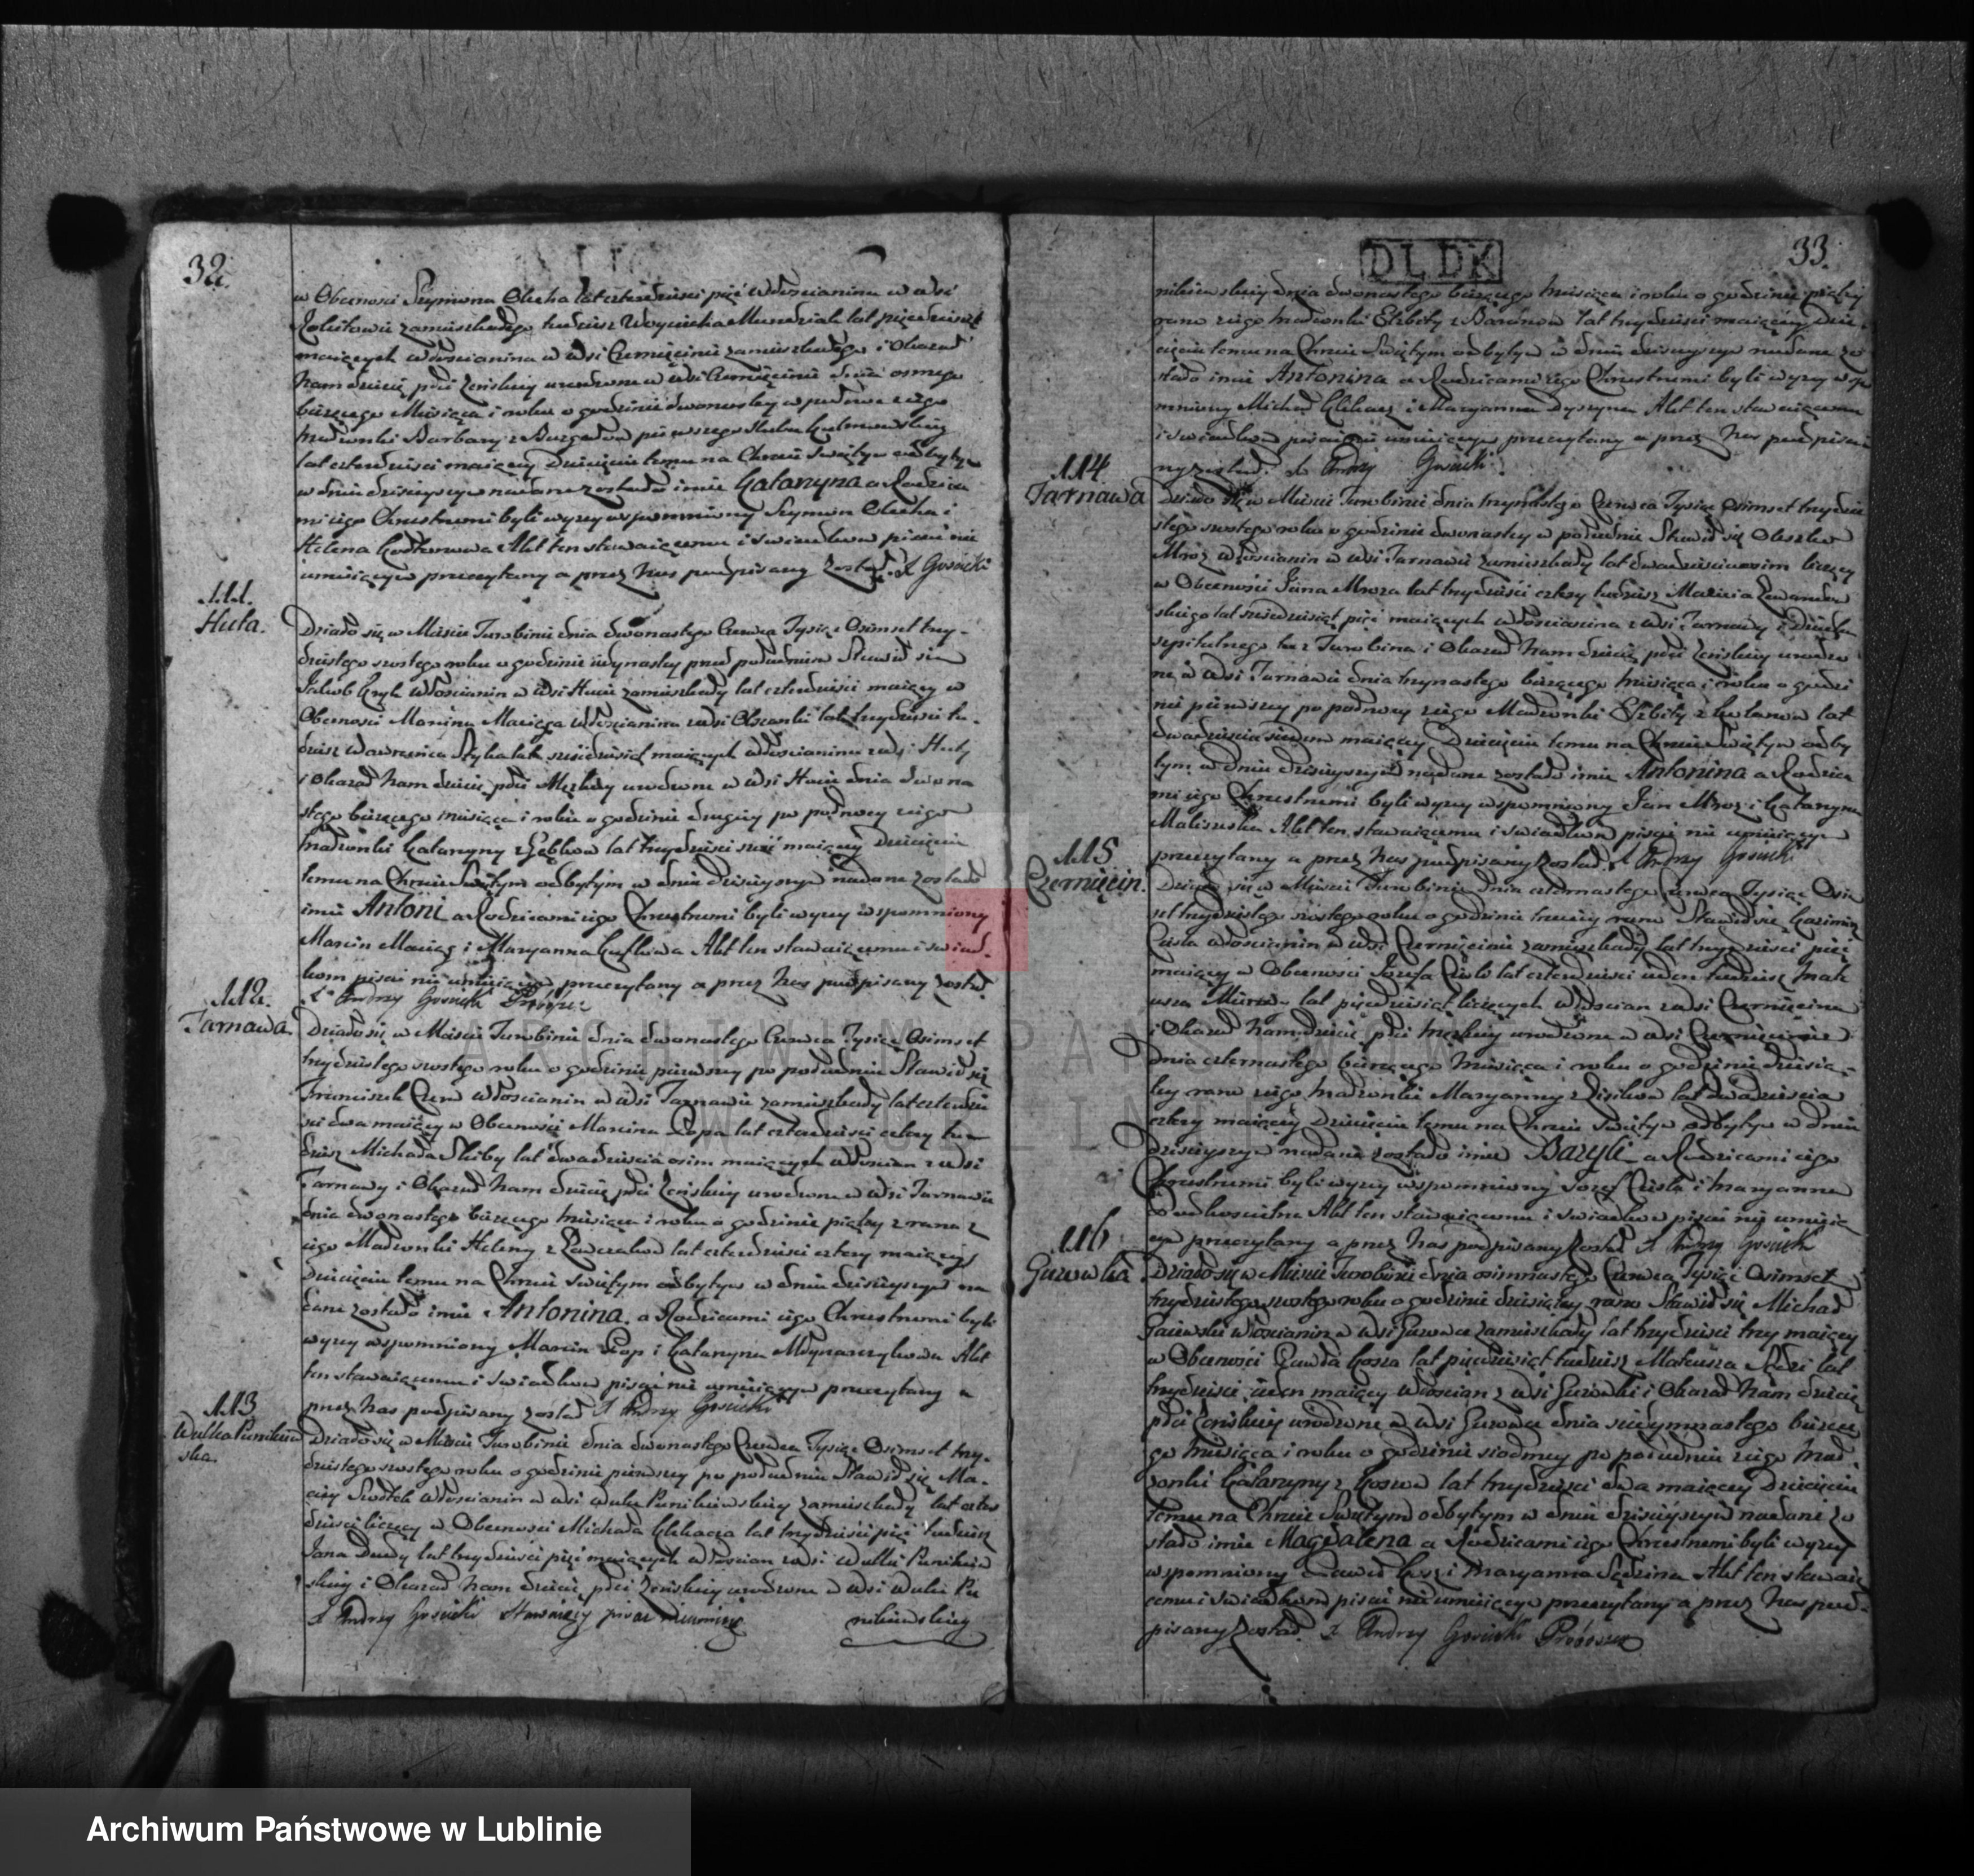 32.
w Obecności Szymona Olecha lat czterdzieści pięć Włościanina w wsi
zamieszkałego tudzież Woyciecha lat pięćdziesiąt
maiących włościanina w wsi Czernięcinie zamieszkałego i Okazał
Nam dziecię płci żeńskiey urodzone w wsi Czernięcinie dnia osmego
bieżącego Miesiąca i roku o godzinie dwunastey w południe z iego
małżonki Barbary z pierwszego ślubu
lat czterdzieści maiącey Dziecięciu temu na Chrzcie Swiętym odbytym
w dniu dzisieyszym nadane zostało imie Katarzyna a Rodzica
mi iego Chrzestnemi byli wyzey wspomniony Szymon Olecha i
Helena Akt ten stawaiącemu i Swiadkom pisać nie
umieiącym przeczytany a przez Nas podpisany został. X Gosicki
111.
Huta.
Działo się w Mieście Turobinie dnia dwunastego Czerwca Tysiąc Osimset trzy-
dziestego szostego roku o godzinie iedynastey przed południem Stawił się
Jakub Włościanin w wsi Hucie zamieszkały lat czterdzieści maiący w
Obecności Marcina Maciąga Włościanina z wsi Olszanki lat trzydzieści tu-
dzież Wawrzeńca lat sześćdziesiąt maiących włościanina z wsi Huty
i Okazał Nam dziecię płci Męzkiey urodzone w wsi Hucie dnia dwuna
stego bieżącego miesiąca i roku o godzinie drugiey po połnocy z iego
małżonki Katarzyny z lat trzydzieści sześć maiącey Dziecięciu
temu na Chrzcie Swiętym odbytym w dniu dzisieyszym nadane zostało
imie Antoni a Rodzicami iego Chrzestnemi byli wyzey wspomniony
Marcin Maciąg i Maryanna Akt ten stawaiącemu i swiad-
kom pisać nie umieiącym przeczytany a przez Nas podpisany został
X Andrzy Gosicki Proboszcz
112.
Tarnawa.
Działo się w Mieście Turobinie dnia dwunastego Czerwca Tysiąc Osimset
trzydziestego szostego roku o godzinie pierwszey po południu Stawił się
Franciszek Włościanin w wsi Tarnawie zamieszkały lat czterdzie
ści dwa maiący w Obecności Marcina Popa lat czterdzieści cztery tu-
dzież Michała lat dwadzieścia osim maiących Włościan z wsi
Tarnawy i Okazał Nam dziecię płci żeńskiey urodzone w wsi Tarnawie
dnia dwunastego bieżącego miesiąca i roku o godzinie piątey z rana z
iego Małżonki Heleny z lat czterdzieści cztery maiącey
Dziecięciu temu na Chrzcie Swiętym odbytym w dniu dzisieyszym na
dane zostało imie Antonina a Rodzicami iego Chrzestnemi byli
wyzey wspomniony Marcin Pop i Katarzyna Młynarczykowa Akt
ten stawaiącemu i Swiadkom pisać nie umieiącym przeczytany a
przez Nas podpisany został X Andrzy Gosicki
113
Wulka Punikiew
ska.
Działo się w Mieście Turobinie dnia dwunastego Czerwca Tysiąc Osimset trzy-
dziestego szostego roku o godzinie pierwszey po południu Stawił się Ma-
ciey Włościanin w wsi Wulce Punikiewskiey zamieszkały lat czter
dzieści liczący w Obecności Michała Klekacza lat trzydzieści pięć tudzież
Jana Dudy lat trzydzieści pięć maiących włościan z wsi Wulki Punikiew
skiey i Okazał Nam dziecię płci żeńskiey urodzone w wsi Wulce Pu
X Andrzy Gosicki Stawaiący pisać nieumieią nikiewskiey
DLDK
33.
nikiewskiey dnia dwunastego bieżącego miesiąca i roku o godzinie piątey
rano z iego małżonki Elzbiety z Baranow lat trzydzieści maiącey Dzie-
cięciu temu na Chrzcie Swiętym odbytym w dniu dzisieyszym nadane zo
stało imie Antonina a Rodzicami iego Chrzestnemi byli wyzey wspo
mniony Michał Klekacz i Maryanna Akt ten stawaiącemu
i swiadkom pisać nie umieiącym przeczytany a przez Nas podpisa
ny został. X Andrzy Gosicki
114
Tarnawa
Działo się w Mieście Turobinie dnia trzynastego Czerwca Tysiąc Osimset trzydzie
stego szostego roku o godzinie dwunastey w południe Stawił się
Mroz Włościanin w wsi Tarnawie zamieszkały lat dwadzieścia osim liczący
w Obecności Jana Mroza lat trzydzieści cztery tudzież Macieia Lewandow
skiego lat sześćdziesiąt pięć maiących włościanina z wsi Tarnawy i Dziadka
szpitalnego tu z Turobina i Okazał Nam dziecię płci żeńskiey urodzo
ne w wsi Tarnawie dnia trzynastego bieżącego miesiąca i roku o godzi
nie pierwszey po połnocy z iego Małżonki Elzbiety z lat
dwadzieścia siedem maiącey Dziecięciu temu na Chrzcie Swiętym odby
tym w dniu dzisieyszym nadane zostało imie Antonina a Rodzica
mi iego Chrzestnemi byli wyzey wspomniony Jan Mroz i Katarzyna
Akt ten stawaiącemu i swiadkom pisać nie umieiącym
przeczytany a przez Nas podpisany został. X Andrzy Gosicki
115
Czernięcin.
Działo się w Mieście Turobinie dnia czternastego Czerwca Tysiąc Osim
set trzydziestego szostego roku o godzinie trzeciey rano Stawił się Kazimierz
Cieśla włościanin w wsi Czernięcinie zamieszkały lat trzydzieści pięć
maiący w Obecności Jozefa Cieśli lat czterdzieści ieden tudzież Mate
usza lat pięćdziesiąt liczących Włościan z wsi Czernięcina
i Okazał Nam dziecię płci męzkiey urodzone w wsi Czernięcinie
dnia czternastego bieżącego miesiąca i roku o godzinie dziesią-
tey rano z iego małżonki Maryanny z lat dwadzieścia
cztery maiącey Dziecięciu temu na Chrzcie Swiętym odbytym w dniu
dzisieyszym nadane zostało imie Bazyli a Rodzicami iego
Chrzestnemi byli wyzey wspomniony Jozef Cieśla i Maryanna
Akt ten stawaiącemu i swiadkom pisać nie umieią
cym przeczytany a przez Nas podpisany został X Andrzy Gosicki
116
Guzowka.
Działo się w Mieście Turobinie dnia osimnastego Czerwca Tysiąc Osimset
trzydziestego szostego roku o godzinie dziesiątey rano Stawił się Michał
Gaiewski Włościanin w wsi Guzowce zamieszkały lat trzydzieści trzy maiący
w Obecności Pawła Kosza lat pięćdziesiąt tudzież Mateusza lat
trzydzieści ieden maiący Włościan z wsi Guzowki i Okazał Nam dziecię
płci żeńskiey urodzone w wsi Guzowce dnia siedymnastego bieżące
go miesiąca i roku o godzinie siodmey po południu z iego Mał
żonki Katarzyny z lat trzydzieści dwa maiącey Dziecięciu
temu na Chrzcie Swiętym odbytym w dniu dzisieyszym nadane zo
stało imie Magdalena a Rodzicami iego Chrzestnemi byli wyzey
wspomniony i Maryanna Akt ten stawaią
cemu i swiadkom pisać nie umieiącym przeczytany a przez Nas pod-
pisany został. X Andrzy Gosicki Proboszcz
ARCHIWUM PAŃSTWOWE
W LUBLINIE
Archiwum Państwowe w Lublinie